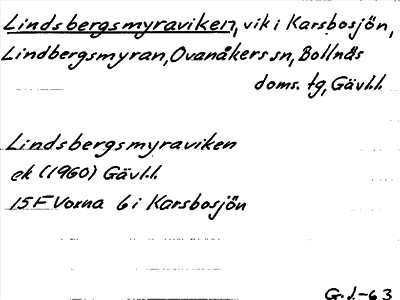 Lindsbergsmyraviken, vik i Karsbosjön,
Lindbergsmyran, Ovanåkers sn, Bollnäs
doms. tg, Gävl.l.
Lindsbergsmyraviken
ek (1960) Gävl.l.
15F Voxna 6 i Karsbosjön
G.J.-63